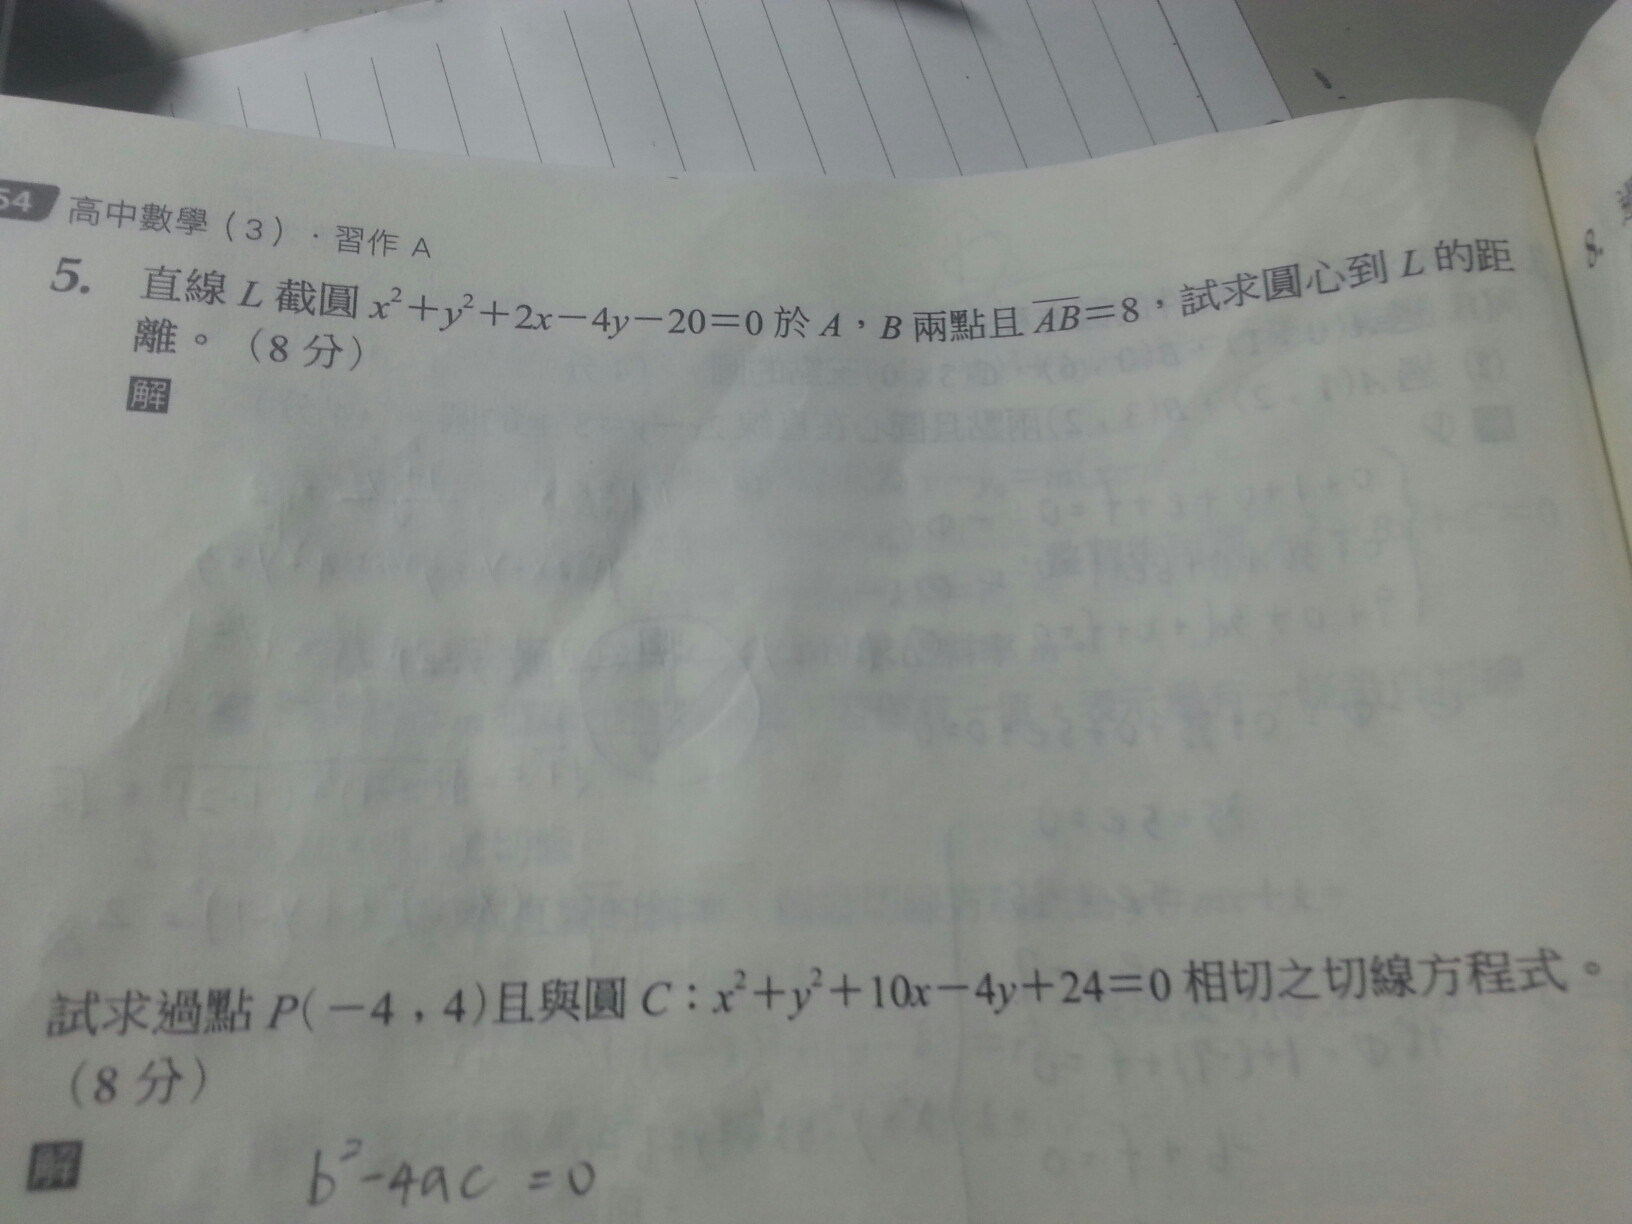 54 高中數學(3)．習作 A
5. 直線 L 截圓 x²+y²+2x−4y−20=0 於 A，B 兩點且 \overline{AB}=8，試求圓心到 L 的距
離。(8 分)
解
試求過點 P(−4，4)且與圓 C：x²+y²+10x−4y+24=0 相切之切線方程式。
(8 分)
解
b²-4ac = 0
8.